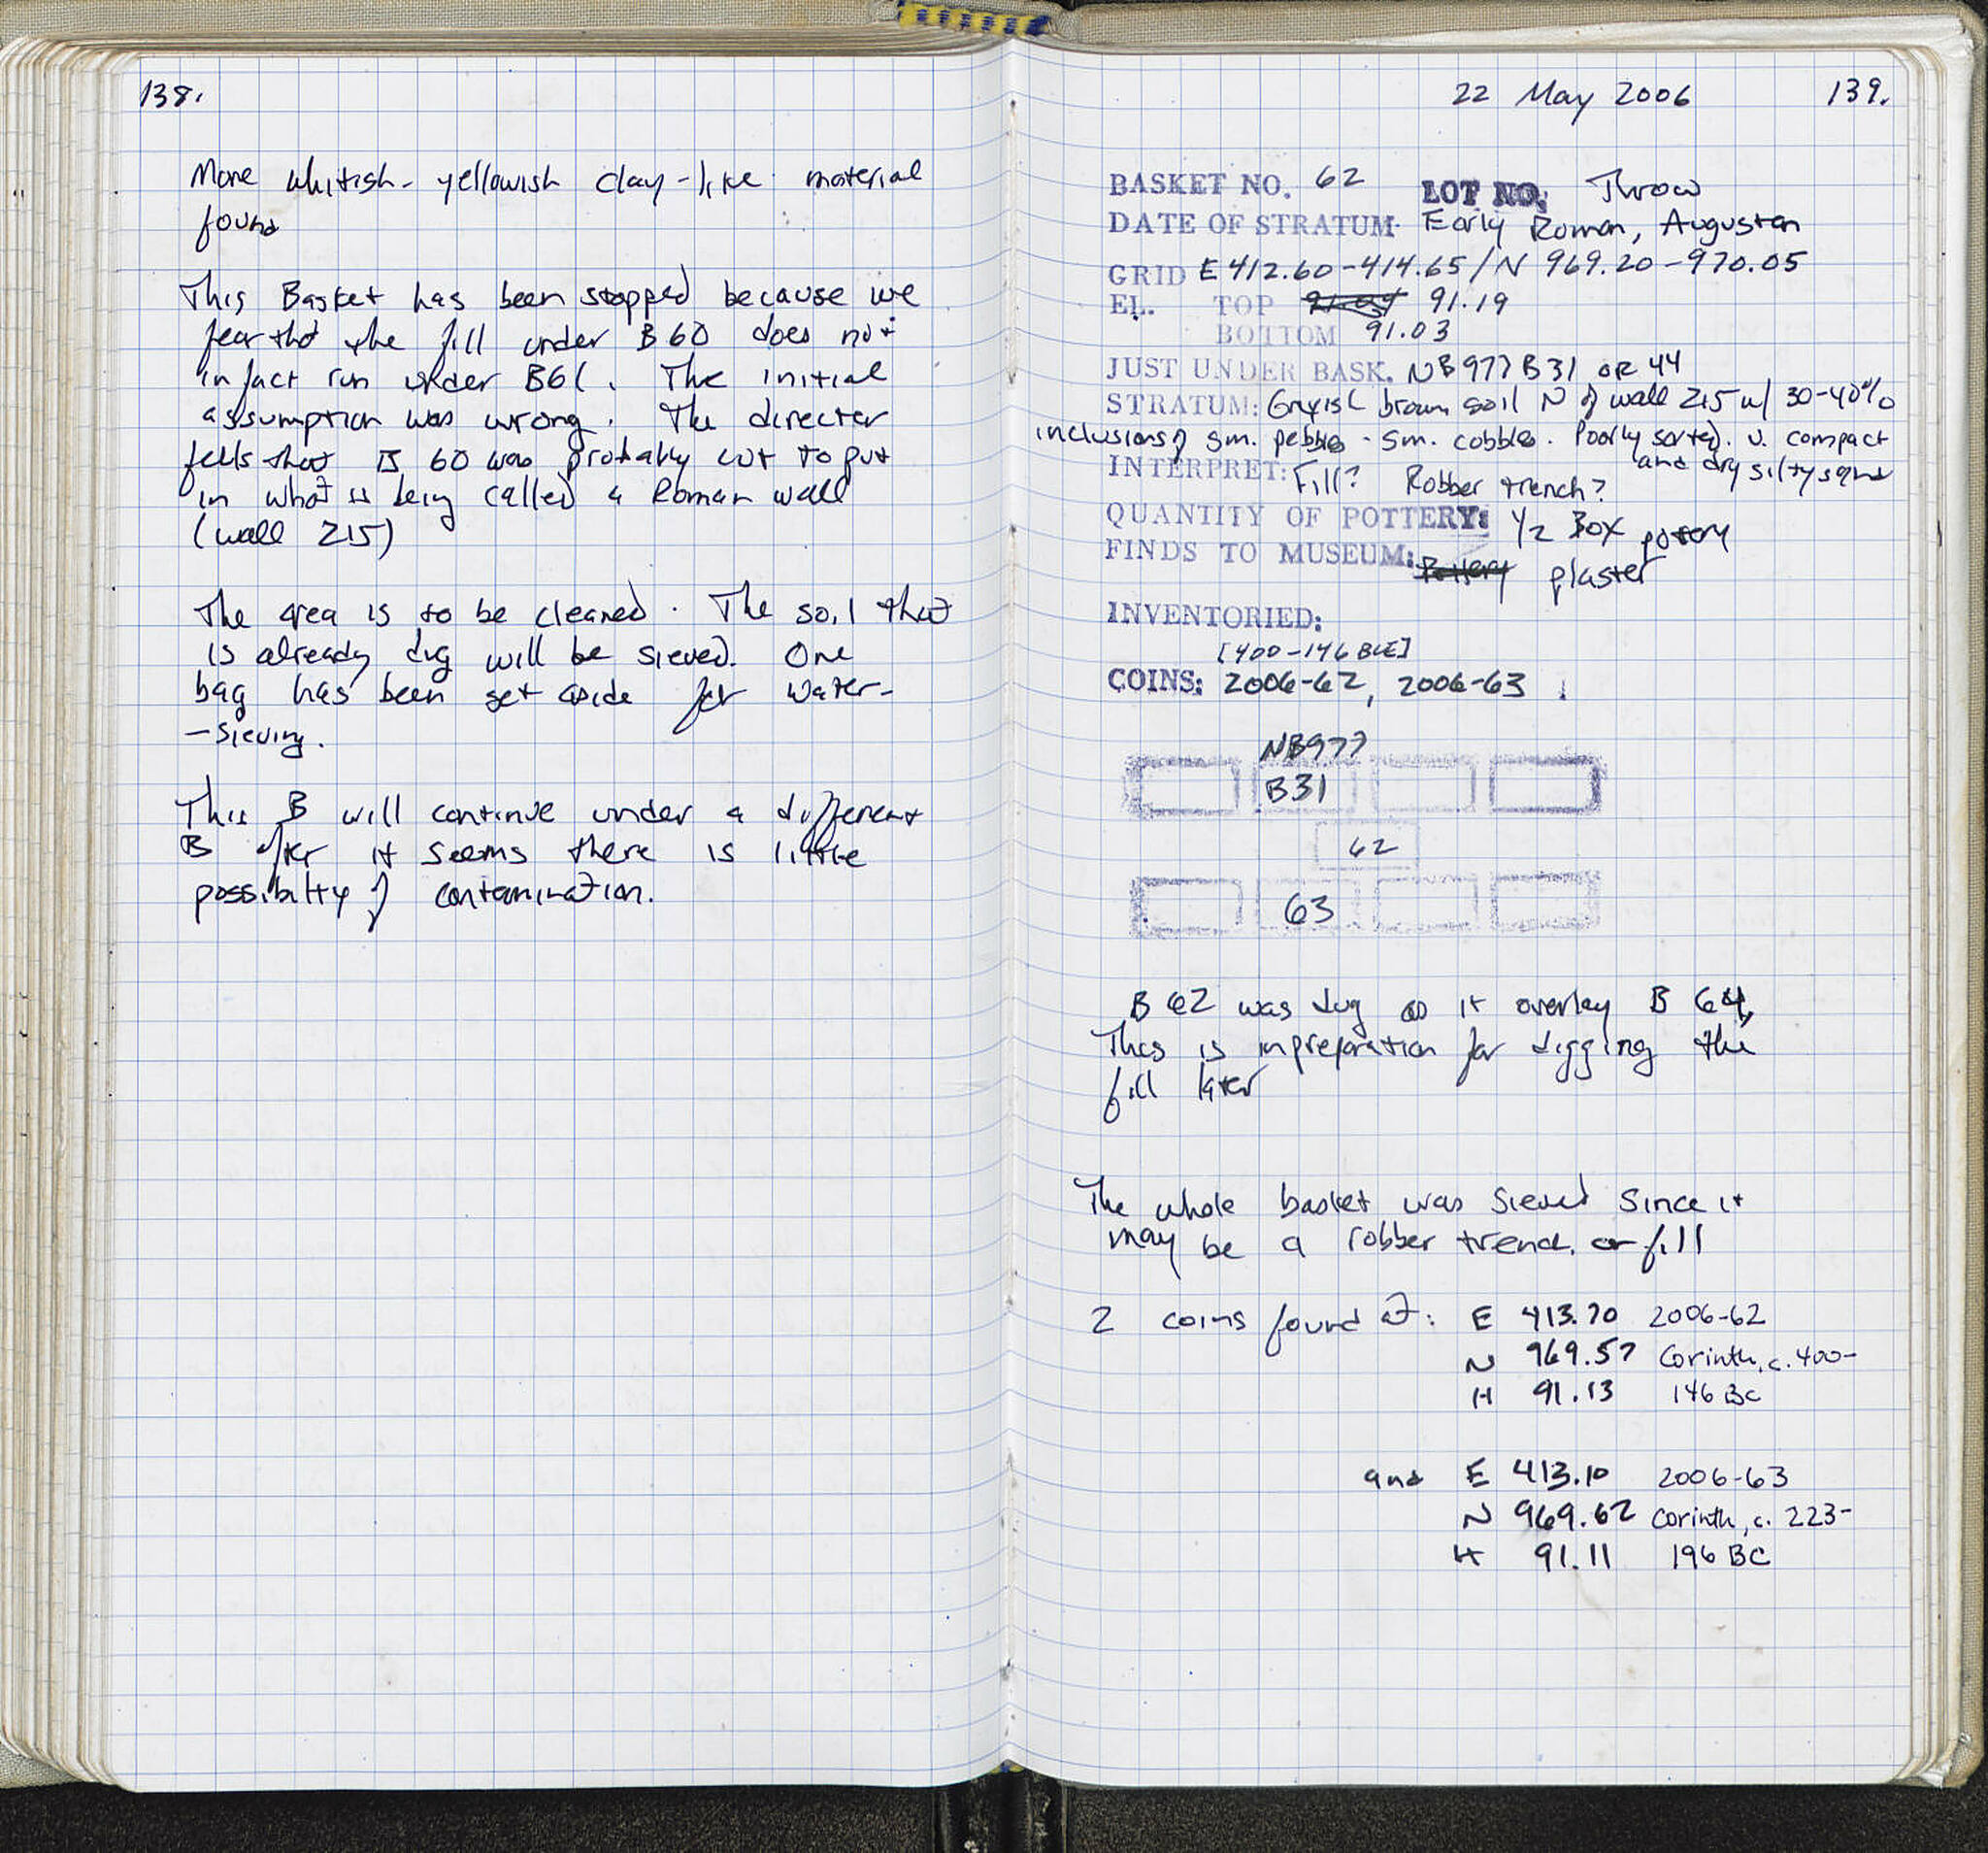 138.
More whitish-yellowish clay-like material
found
This Basket has been stopped because we
fear that the fill under B60 does not
in fact run under B61. The initial
assumption was wrong. The director
feels that B 60 was probably cut to put
in what is being called a Roman wall
(wall 215)
The area is to be cleaned. The soil that
is already dug will be sieved. One
bag has been set aside for water-
-sieving.
This B will continue under a different
B after it seems there is little
possibilty of contamination.
22 May 2006 139.
BASKET NO. 62 LOT NO: Throw
DATE OF STRATUM Early Roman, Augustan
GRID E 412.60-414.65 / N 969.20-970.05
EL. TOP 91.19
BOTTOM 91.03
JUST UNDER BASK. NB977 B31 OR 44
STRATUM: Grayish brown soil N of wall 215 w/ 30-40%
inclusions of sm. pebbles - sm. cobbles. Poorly sorted. v. compact
and dry silty sand
INTERPRET: Fill? Robber trench?
QUANTITY OF POTTERY: 1/2 Box pottery
FINDS TO MUSEUM: Pottery plaster
INVENTORIED:
[400-146 BCE]
COINS: 2006-62, 2006-63
NB977
B31
62
63
B 62 was dug as it overlay B 64,
This is in preparation for digging the
fill later
The whole basket was sieved since it
may be a robber trench or fill
2 coins found at: E 413.70 2006-62
N 969.57 Corinth, c. 400-
H 91.13 146 BC
and E 413.10 2006-63
N 969.62 Corinth, c. 223-
H 91.11 196 BC